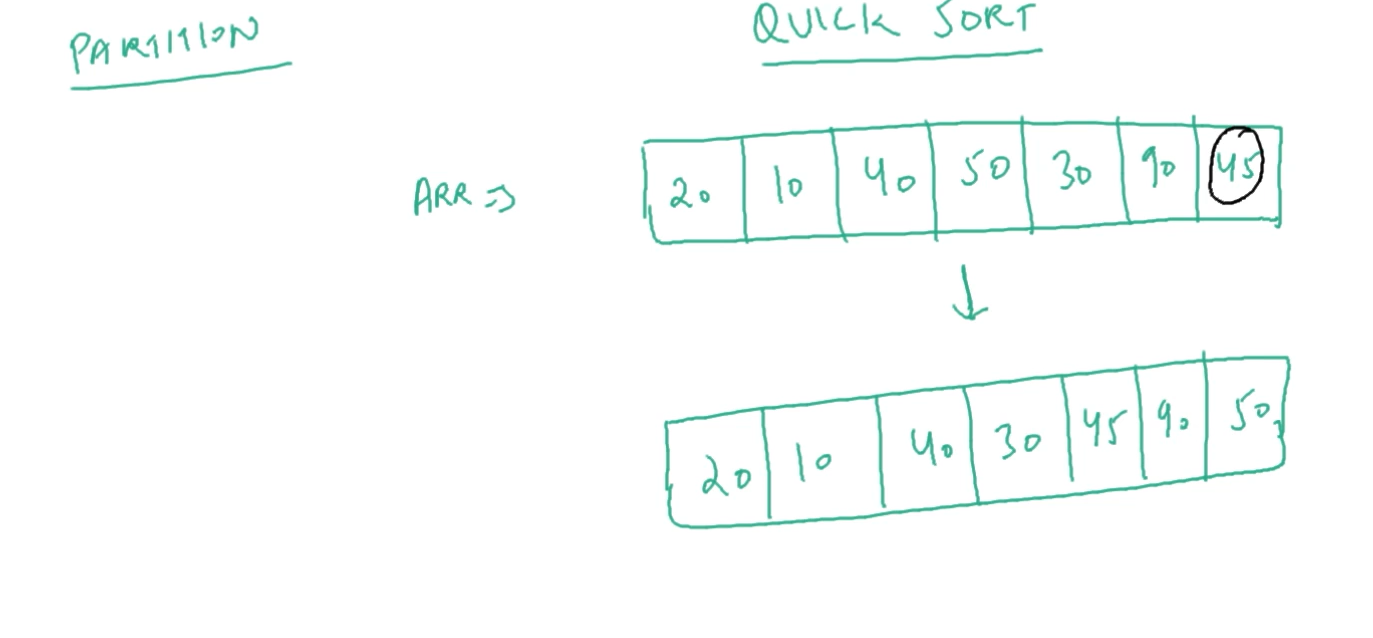 PARTITION
QUICK SORT
ARR ⇒ 20 10 40 50 30 90 45
↓
20 10 40 30 45 90 50